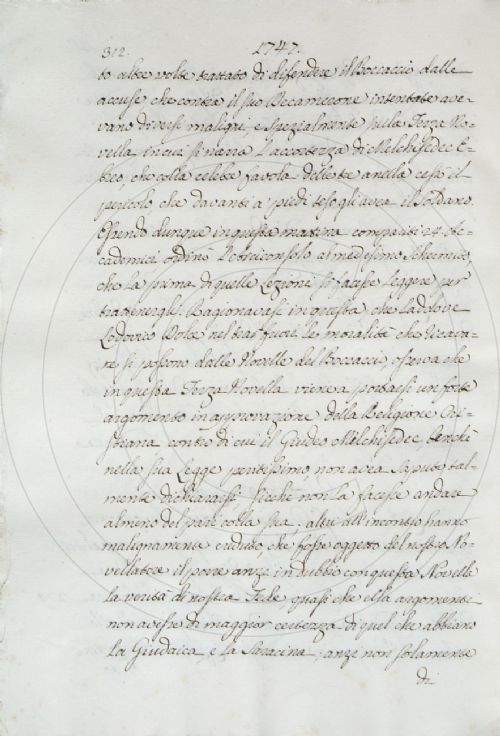 312. 1747.
to altre volte trattato di difendere il Boccaccio dalle
accuse, che contra il suo Decamerone intentate ave-
vano diversi maligni, e spezialmente sulla Terza No-
vella, in cui si narra l'accortezza di Melchisedec E-
breo, che colla celebre favola delle tre anella cessò il
pericolo che davanti a' piedi teso gli avea il Soldano.
Essendo dunque in questa mattina compariti 24. Ac-
cademici ordinò l'Arciconsolo al medesimo Schermito,
che la prima di quelle Lezioni si facesse leggere per
trattenergli. Ragionavasi in questa che laddove
Lodovico Dolce nel trar fuori le moralità che ricava-
re si possono dalle Novelle del Boccacci, osserva che
in questa Terza Novella viene a portarsi un forte
argomento in approvazione della Religione Cri-
stiana contro di cui il Giudeo Melchisedec, benché
nella sua Legge peritissimo, non avea saputo tal-
mente dichiararsi, sicché non la facesse andare
almeno del pari colla sua. altri all'incontro hanno
malignamente creduto, che fosse oggetto del nostro No-
vellatore il porre anzi in dubbio con questa Novella
la verità di nostra Fede quasi che ella argomenti
non avesse di maggior certezza di quel che abbiano
la Giudaica e la Saracina; anzi non solamente
di